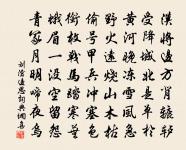 漢將邊方背轆轤
受降城北是單于
黃河晚凍雪風急
野火遠燒山木枯
偷號甲兵衝塞色
銜枚戰馬踏寒蕪
蛾眉一沒空留怨
青冢月明啼夜烏
劉滄邊思詞典網書